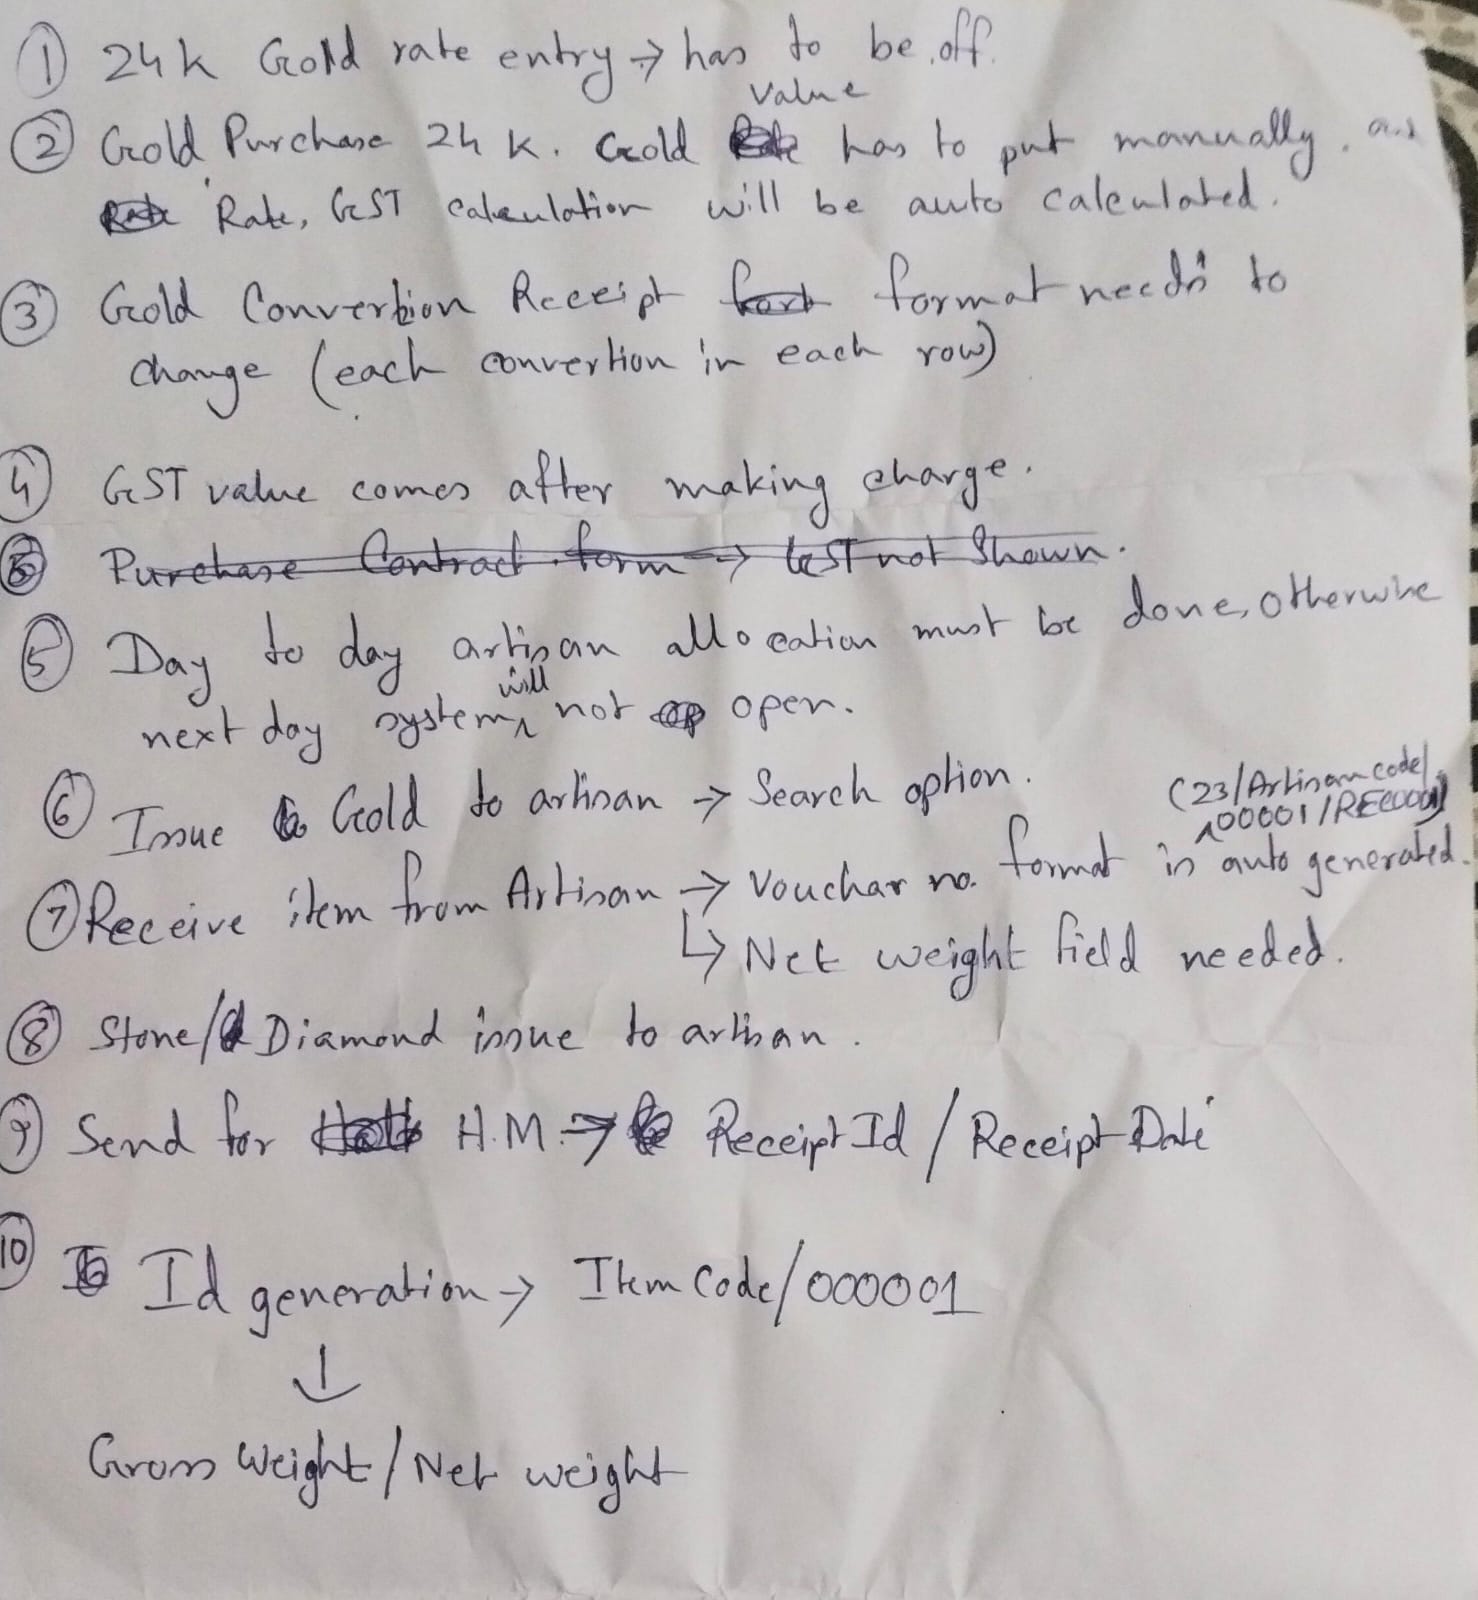 ① 24k Gold rate entry → has to be off.
value
② Gold Purchase 24 k. Gold has to put manually. and
Rate, GST calculation will be auto calculated.
③ Gold Convertion Receipt format needs to
change (each convertion in each row)
④ GST value comes after making charge.
Purchase Contract form → GST not Shown.
⑤ Day to day artisan allocation must be done, otherwise
will
next day system, not open.
⑥ Issue Gold to artisan → Search option.
(23/Artisan code/
00001/REC0001)
⑦ Receive item from Artisan → Vouchar no. format is auto generated.
↳ Net weight field needed.
⑧ Stone/Diamond issue to artisan.
⑨ Send for H.M. → Receipt Id / Receipt Date
⑩ Id generation → Item Code/000001
↓
Gross Weight/Net weight